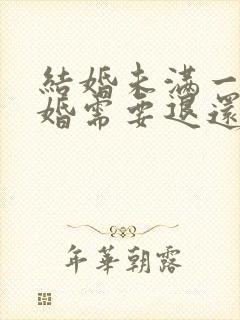 結婚未滿一
婚需要退還
年華朝露